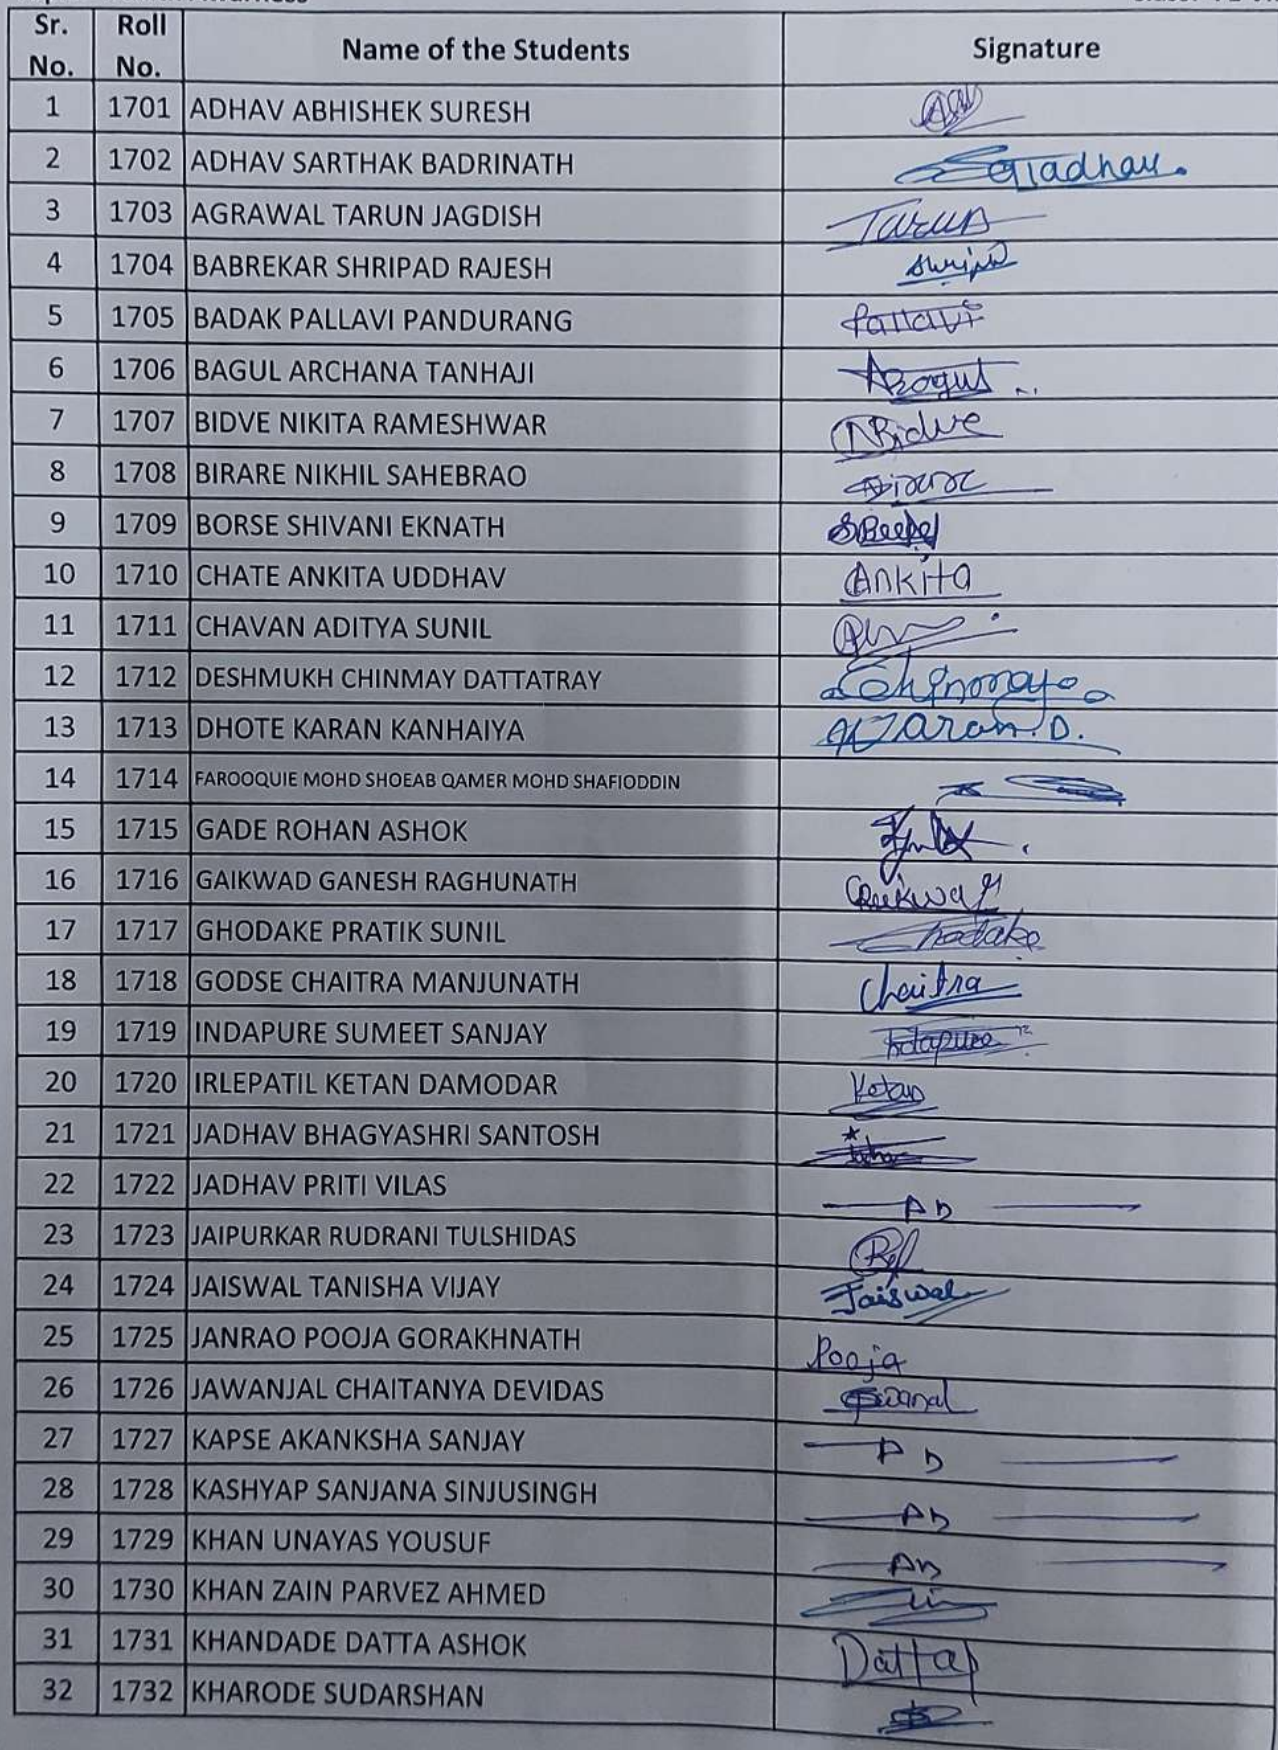 Sr. No. Roll No. Name of the Students Signature
1 1701 ADHAV ABHISHEK SURESH
2 1702 ADHAV SARTHAK BADRINATH
3 1703 AGRAWAL TARUN JAGDISH Tarun
4 1704 BABREKAR SHRIPAD RAJESH
5 1705 BADAK PALLAVI PANDURANG Pallavi
6 1706 BAGUL ARCHANA TANHAJI
7 1707 BIDVE NIKITA RAMESHWAR NBidve
8 1708 BIRARE NIKHIL SAHEBRAO
9 1709 BORSE SHIVANI EKNATH
10 1710 CHATE ANKITA UDDHAV Ankita
11 1711 CHAVAN ADITYA SUNIL
12 1712 DESHMUKH CHINMAY DATTATRAY Chinmay
13 1713 DHOTE KARAN KANHAIYA Karan.D.
14 1714 FAROOQUIE MOHD SHOEAB QAMER MOHD SHAFIODDIN
15 1715 GADE ROHAN ASHOK
16 1716 GAIKWAD GANESH RAGHUNATH
17 1717 GHODAKE PRATIK SUNIL Ghodake
18 1718 GODSE CHAITRA MANJUNATH Chaitra
19 1719 INDAPURE SUMEET SANJAY Indapure
20 1720 IRLEPATIL KETAN DAMODAR Ketan
21 1721 JADHAV BHAGYASHRI SANTOSH
22 1722 JADHAV PRITI VILAS Ab
23 1723 JAIPURKAR RUDRANI TULSHIDAS
24 1724 JAISWAL TANISHA VIJAY Jaiswal
25 1725 JANRAO POOJA GORAKHNATH Pooja
26 1726 JAWANJAL CHAITANYA DEVIDAS
27 1727 KAPSE AKANKSHA SANJAY Ab
28 1728 KASHYAP SANJANA SINJUSINGH Ab
29 1729 KHAN UNAYAS YOUSUF Ab
30 1730 KHAN ZAIN PARVEZ AHMED
31 1731 KHANDADE DATTA ASHOK Datta
32 1732 KHARODE SUDARSHAN